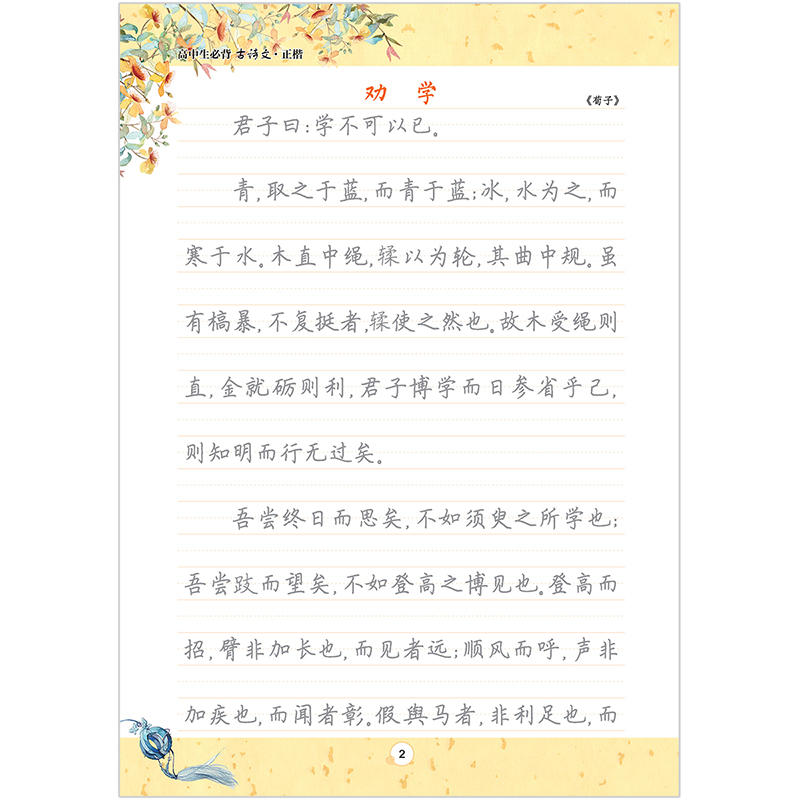 高中生必背 古诗文·正楷
劝 学
《荀子》
君子曰:学不可以已。
青,取之于蓝,而青于蓝;冰,水为之,而
寒于水。木直中绳,輮以为轮,其曲中规。虽
有槁暴,不复挺者,輮使之然也。故木受绳则
直,金就砺则利,君子博学而日参省乎己,
则知明而行无过矣。
吾尝终日而思矣,不如须臾之所学也;
吾尝跂而望矣,不如登高之博见也。登高而
招,臂非加长也,而见者远;顺风而呼,声非
加疾也,而闻者彰。假舆马者,非利足也,而
2